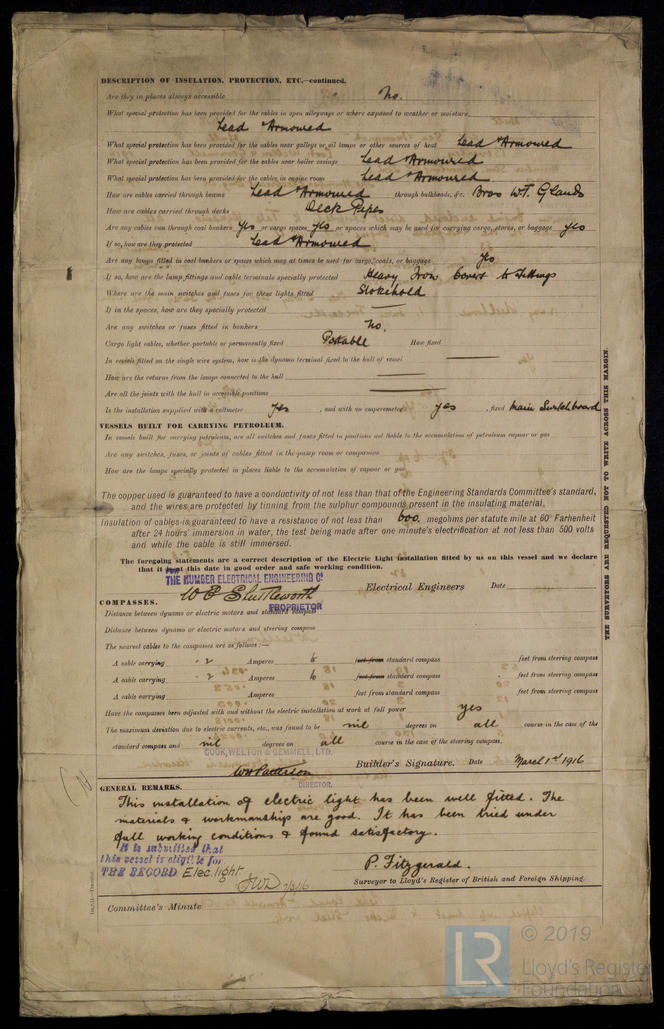 DESCRIPTION OF INSULATION, PROTECTION, ETC.—continued.
Are they in places always accessible No.
What special protection has been provided for the cables in open alleyways or where exposed to weather or moisture
Lead & Armoured
What special protection has been provided for the cables near galleys or oil lamps or other sources of heat Lead & Armoured
What special protection has been provided for the cables near boiler casings Lead & Armoured
What special protection has been provided for the cables in engine room Lead & Armoured
How are cables carried through beams Lead & Armoured through bulkheads, &c. Brass W.T. Glands
How are cables carried through decks Deck Pipes
Are any cables run through coal bunkers yes or cargo spaces yes or spaces which may be used for carrying cargo, stores, or baggage yes
If so, how are they protected Lead & Armoured
Are any lamps fitted in coal bunkers or spaces which may at times be used for cargo, coals, or baggage yes
If so, how are the lamp fittings and cable terminals specially protected Heavy Iron Covers to fittings
Where are the main switches and fuses for these lights fitted Stokehold
If in the spaces, how are they specially protected
Are any switches or fuses fitted in bunkers no.
Cargo light cables, whether portable or permanently fixed Portable How fixed
In vessels fitted on the single wire system, how is the dynamo terminal fixed to the hull of vessel
How are the returns from the lamps connected to the hull
Are all the joints with the hull in accessible positions
Is the installation supplied with a voltmeter yes, and with an amperemeter yes, fixed Main Switchboard
VESSELS BUILT FOR CARRYING PETROLEUM.
In vessels built for carrying petroleum, are all switches and fuses fitted in positions not liable to the accumulation of petroleum vapour or gas
Are any switches, fuses, or joints of cables fitted in the pump room or companion
How are the lamps specially protected in places liable to the accumulation of vapour or gas
The copper used is guaranteed to have a conductivity of not less than that of the Engineering Standards Committee's standard,
and the wires are protected by tinning from the sulphur compounds present in the insulating material.
Insulation of cables is guaranteed to have a resistance of not less than 600 megohms per statute mile at 60° Farhenheit
after 24 hours' immersion in water, the test being made after one minute's electrification at not less than 500 volts
and while the cable is still immersed.
The foregoing statements are a correct description of the Electric Light installation fitted by us on this vessel and we declare
that it is at this date in good order and safe working condition.
FOR
THE HUMBER ELECTRICAL ENGINEERING Co
W E Shuttleworth Electrical Engineers Date
PROPRIETOR
COMPASSES.
Distance between dynamo or electric motors and standard compass
Distance between dynamo or electric motors and steering compass
The nearest cables to the compasses are as follows:—
A cable carrying .2 Amperes 6 feet from standard compass feet from steering compass
A cable carrying .2 Amperes 6 feet from standard compass feet from steering compass
A cable carrying Amperes feet from standard compass feet from steering compass
Have the compasses been adjusted with and without the electric installation at work at full power yes
The maximum deviation due to electric currents, etc., was found to be nil degrees on all course in the case of the
standard compass and nil degrees on all course in the case of the steering compass.
COOK, WELTON & GEMMELL, LTD.
WH Pattison Builder's Signature. Date March 1st 1916
DIRECTOR.
GENERAL REMARKS.
This installation of electric light has been well fitted. The
materials & workmanships are good. It has been tried under
full working conditions & found satisfactory.
It is submitted that
this vessel is eligible for
THE RECORD Elec. light
P. Fitzgerald.
Surveyor to Lloyd's Register of British and Foreign Shipping.
Committee's Minute
THE SURVEYORS ARE REQUESTED NOT TO WRITE ACROSS THIS MARGIN.
LR
© 2019
Lloyd's Register
Foundation